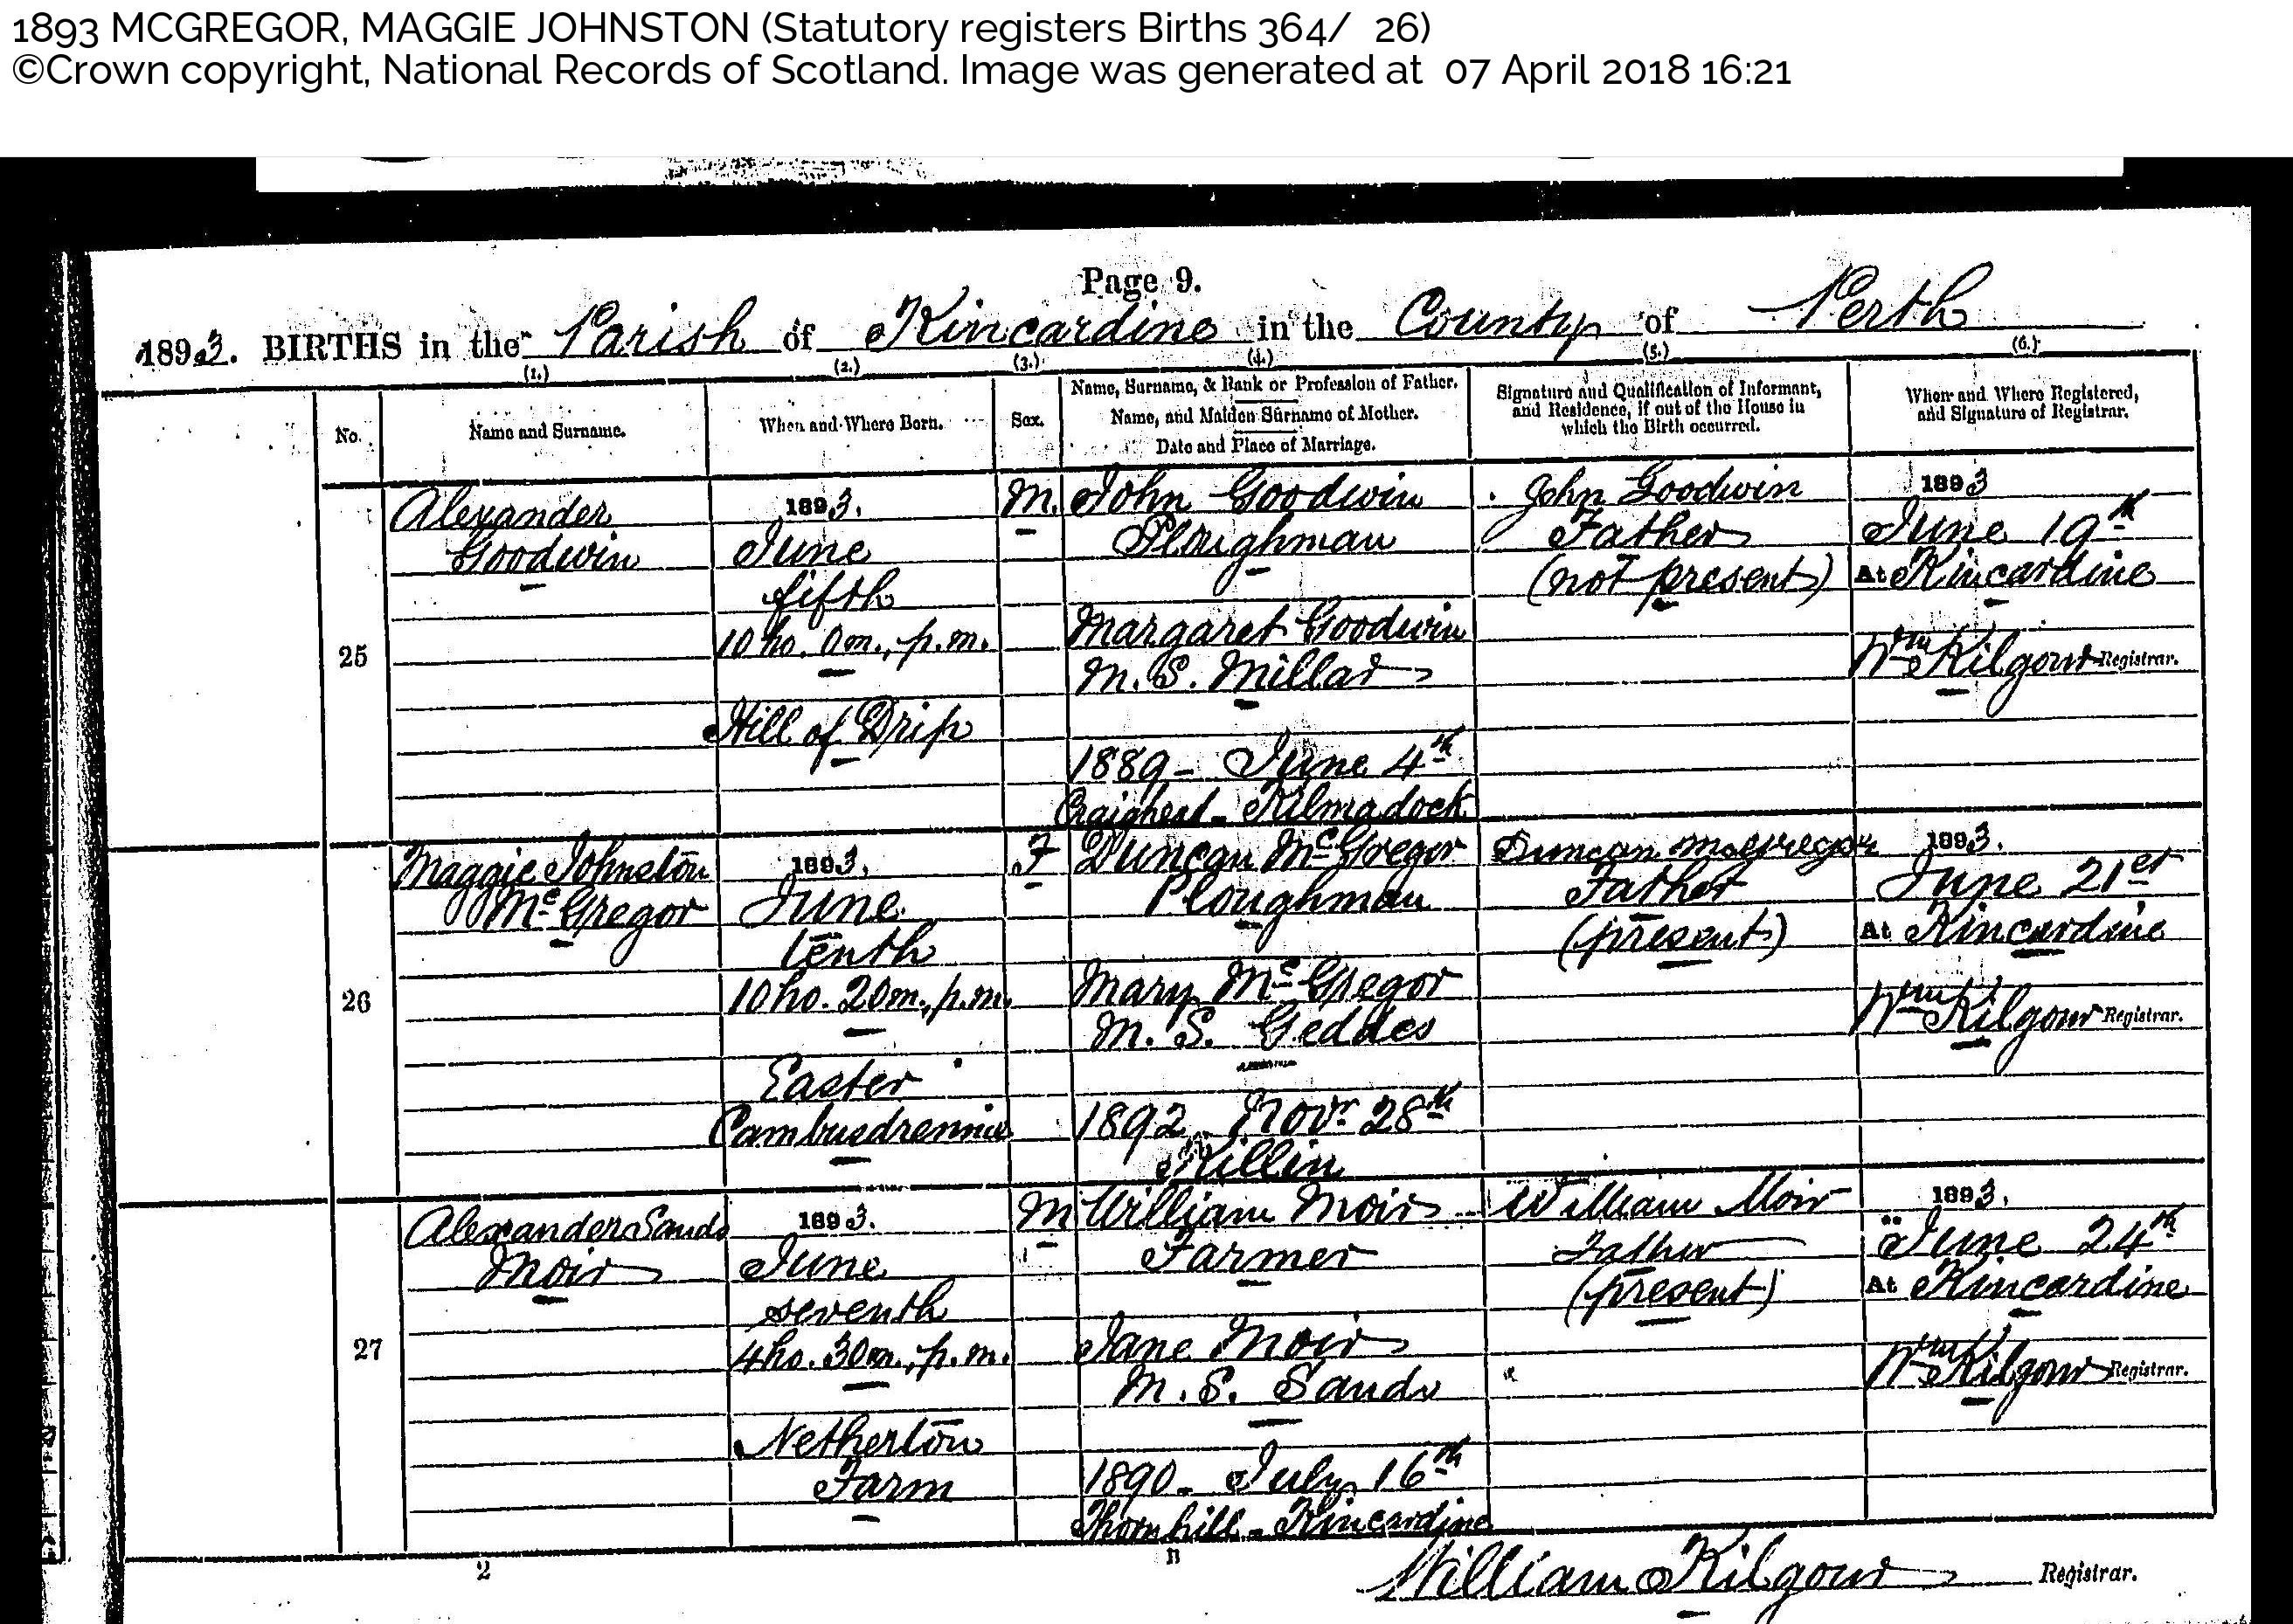 1893 MCGREGOR, MAGGIE JOHNSTON (Statutory registers Births 364/ 26)
©Crown copyright, National Records of Scotland. Image was generated at 07 April 2018 16:21
Page 9.
1893. BIRTHS in the Parish of Kincardine in the County of Perth
(1.) (2.) (3.) (4.) (5.) (6.)
No.
Name and Surname.
When and Where Born.
Sex.
Name, Surname, & Rank or Profession of Father.
Name, and Maiden Surname of Mother.
Date and Place of Marriage.
Signature and Qualification of Informant,
and Residence, if out of the House in
which the Birth occurred.
When and Where Registered,
and Signature of Registrar.
25
Alexander
Goodwin
1893.
June
fifth
10 ho. 0m., p.m.
Hill of Drip
M.
John Goodwin
Ploughman
Margaret Goodwin
M. S. Millar
1889 - June 4th
Craighead - Kilmadock
John Goodwin
Father
(not present)
1893
June 19th
At Kincardine
Wm Kilgour Registrar.
26
Maggie Johnston
McGregor
1893.
June
tenth
10 ho. 20m., p.m.
Easter
Cambusdrennie
F
Duncan McGregor
Ploughman
Mary McGregor
M. S. Geddes
1892 Novr 28th
Killin
Duncan McGregor
Father
(present)
1893.
June 21st
At Kincardine
Wm Kilgour Registrar.
27
Alexander Sands
Moir
1893.
June
seventh
4 ho. 30m., p.m.
Netherton
Farm
M
William Moir
Farmer
Jane Moir
M. S. Sands
1890 - July 16th
Thornhill - Kincardine
William Moir
Father
(present)
1893.
June 24th
At Kincardine
Wm Kilgour Registrar.
2
B
William Kilgour Registrar.